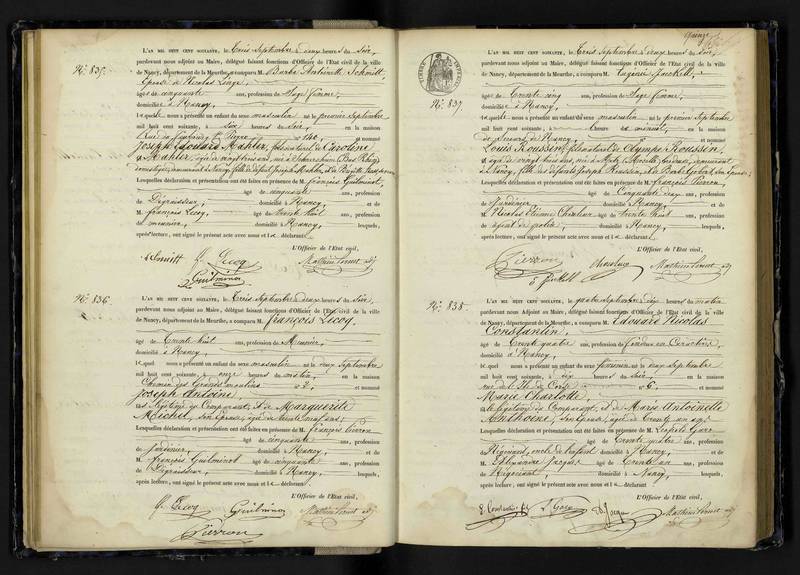 N° 835.
L'AN MIL HUIT CENT SOIXANTE, le trois Septembre à deux heures du soir,
pardevant nous adjoint au Maire, délégué faisant fonctions d'Officier de l'Etat civil de la ville
de Nancy, département de la Meurthe, a comparu M. Barbe Antoinette Schmitt
Epouse de Nicolas
âgée de cinquante ans, profession de Sage femme,
domiciliée à Nancy,
laquelle nous a présenté un enfant du sexe masculin né le premier Septembre
mil huit cent soixante, à six heures du soir, en la maison
Rue du Faubourg St Pierre n° 140, et nommé
Joseph Edouard Mahler, fils naturel de Caroline
Mahler, agée de vingt trois ans, née à (Bas Rhin)
domestique, demeurant à Nancy, fille de défunt Joseph Mahler, et de
Lesquelles déclaration et présentation ont été faites en présence de M. François Guilminot,
âgé de cinquante ans, profession
de Dégraisseur, domicilié à Nancy, et de
M. François Lecoq, âgé de trente huit ans, profession
de meunier, domicilié à Nancy, lesquels,
après lecture, ont signé le présent acte avec nous et la déclarante
L'Officier de l'Etat civil,
Schmitt F. Lecoq
Guilminot
N° 836.
L'AN MIL HUIT CENT SOIXANTE, le trois Septembre à deux heures du soir,
pardevant nous adjoint au Maire, délégué faisant fonctions d'Officier de l'Etat civil de la ville
de Nancy, département de la Meurthe, a comparu M. François Lecoq,
âgé de trente huit ans, profession de Meunier,
domicilié à Nancy,
lequel nous a présenté un enfant du sexe masculin né le deux Septembre
mil huit cent soixante, à onze heures du matin, en la maison
Chemin des Grands moulins n° 2, et nommé
Joseph Antoine,
fils légitime du Comparant, et de Marguerite
Michel, son épouse, agée de trente
Lesquelles déclaration et présentation ont été faites en présence de M. François Pierron
âgé de cinquante ans, profession
de Jardinier, domicilié à Nancy, et de
M. François Guilminot âgé de cinquante ans, profession
de Dégraisseur, domicilié à Nancy, lesquels,
après lecture, ont signé le présent acte avec nous et le déclarant
L'Officier de l'Etat civil,
F. Lecoq Guilminot
Pierron
N° 837
L'AN MIL HUIT CENT SOIXANTE, le trois Septembre à deux heures du soir,
pardevant nous adjoint au Maire, délégué faisant fonctions d'Officier de l'Etat civil de la ville
de Nancy, département de la Meurthe, a comparu M. Eugénie
âgée de trente cinq ans, profession de Sage femme,
domiciliée à Nancy,
laquelle nous a présenté un enfant du sexe masculin né le premier Septembre
mil huit cent soixante, à une heure du matin, en la maison
de Secours de Nancy, et nommé
Louis Roussin, fils naturel de Olympe Roussin,
agée de vingt trois ans, née à Metz (Moselle), demeurant
à Nancy, fille des défunts Joseph Roussin, et de Barbe
Lesquelles déclaration et présentation ont été faites en présence de M. François Pierron,
âgé de cinquante deux ans, profession
de Jardinier, domicilié à Nancy, et de
M. Nicolas Etienne âgé de trente huit ans, profession
de agent de police, domicilié à Nancy, lesquels,
après lecture, ont signé le présent acte avec nous et la déclarante
L'Officier de l'Etat civil,
Pierron
N° 838.
L'AN MIL HUIT CENT SOIXANTE, le quatre Septembre à dix heures du matin
pardevant nous adjoint au Maire, délégué faisant fonctions d'Officier de l'Etat civil de la ville
de Nancy, département de la Meurthe, a comparu M. Edouard Nicolas
Constantin,
âgé de trente quatre ans, profession de fondeur en Caractères,
domicilié à Nancy,
lequel nous a présenté un enfant du sexe féminin né le deux Septembre
mil huit cent soixante, à six heures du soir en la maison
rue de l'Ile de Corse n° 6, et nommé
Marie Charlotte,
fille légitime du Comparant, et de Marie Antoinette
Anthoine, son épouse, agée de trente un ans
Lesquelles déclaration et présentation ont été faites en présence de M. Léopold
âgé de trente quatre ans, profession
de Négociant, oncle de l'enfant domicilié à Nancy, et de
M. âgé de trente un ans, profession
de Négociant, domicilié à Nancy, lesquels,
après lecture, ont signé le présent acte avec nous et le déclarant
L'Officier de l'Etat civil,
E. Constantin